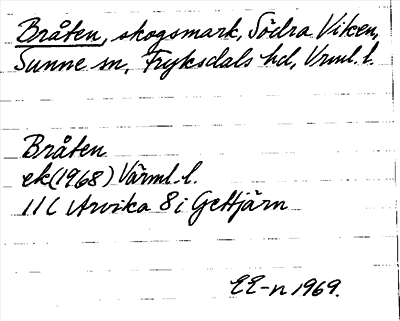 Bråten, skogsmark, Södra Viken,
Sunne sn, Fryksdals hd, Vrml. l.
Bråten
ek (1968) Värml. l.
11 C Arvika 8 i Gettjärn
EE-n 1969.